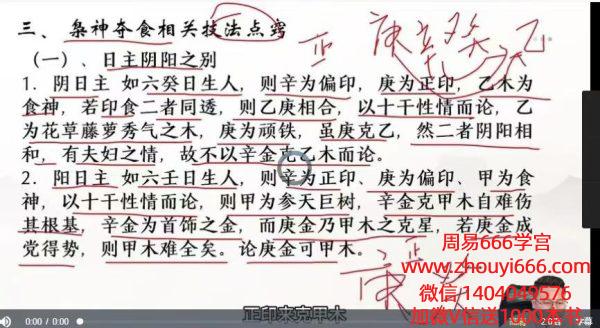 三、枭神夺食相关技法点窍
正 庚辛癸乙
（一）、日主阴阳之别
1．阴日主 如六癸日生人，则辛为偏印，庚为正印，乙木为
食神，若印食二者同透，则乙庚相合，以十干性情而论，乙
为花草藤萝秀气之木，庚为顽铁，虽庚克乙，然二者阴阳相
和，有夫妇之情，故不以辛金克乙木而论。
2．阳日主 如六壬日生人，则辛为正印、庚为偏印、甲为食
神，以十干性情而论，则甲为参天巨树，辛金克甲木自难伤
其根基，辛金为首饰之金，而庚金乃甲木之克星，若庚金成
党得势，则甲木难全矣。论庚金可甲木。
正
庚
周易666学宫
www.zhouyi666.com
微信1404049576
加微V信送1000本书
正印来克甲木
0:00 / 0:00
2.0x
字幕